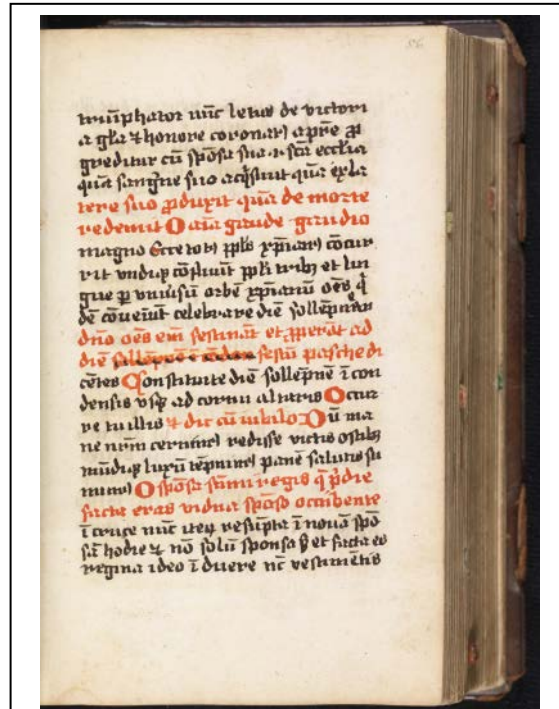 triūphator nūc letus de victori
a gl̄a ⁊ honore coronatꝰ a pr̄e ꝓ
greditur cū spōsa sua .i. sc̄a eccl̄ia
quā sangⁱne suo acq̄siuit quā ex la
tere suo ꝓduxit quā de morte
redemit O aīa gaude gaudio
magno Ecce totꝰ ppl̄s xp̄ianꝰ cōcur
rit vndiqꝫ cōfluūt ppl̄i tribꝫ et lin
gue ꝑ vniuīsū orbē xp̄ianū oēs
dē cōueīūt celebrare diē sollēpnē
dn̄o oēs em̄ festināt et ꝓperāt ad
diē festū pasche di
cētes Constituite diē sollēpnē ī con
densis vsqꝫ ad cornu altaris O cur
re tu illis ⁊ dic cū iubilo Dū ma
ne nr̄m cernimꝰ redisse victis ostibꝫ
mūdiqꝫ luxū tēpnimꝰ panē salutis su
mimꝰ O spōsa sūmi regis q̄ pͥdie
facta eras vidua spōso occūbente
ī cruce nūc iteꝝ resūpta ī nouā spō
sā hodie ⁊ nō solū sponsa sꝫ et facta es
regina ideo īduere nūc vestimētis